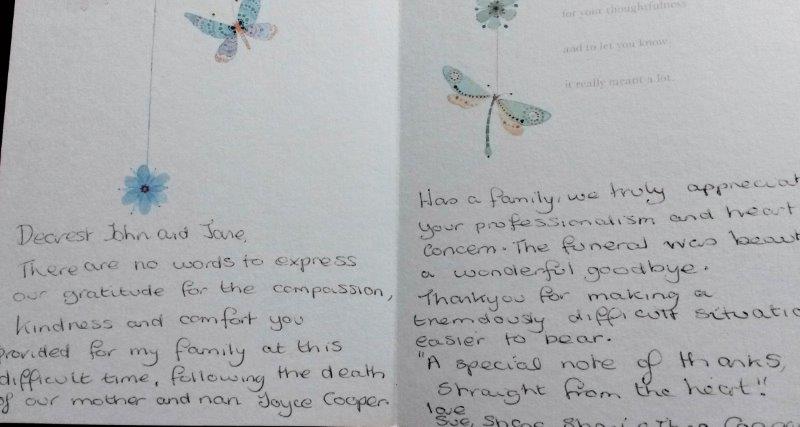 Dearest John and Jane,
There are no words to express
our gratitude for the compassion,
kindness and comfort you
provided for my family at this
difficult time, following the death
of our mother and nan Joyce Cooper.
for your thoughtfulness
and to let you know
it really meant a lot.
Has a family, we truly appreciat
your professionalism and heart
concern. The funeral was beaut
a wonderful goodbye.
Thankyou for making a
tremdously difficult situatio
easier to bear.
"A special note of thanks,
straight from the heart!"
love
Sue,